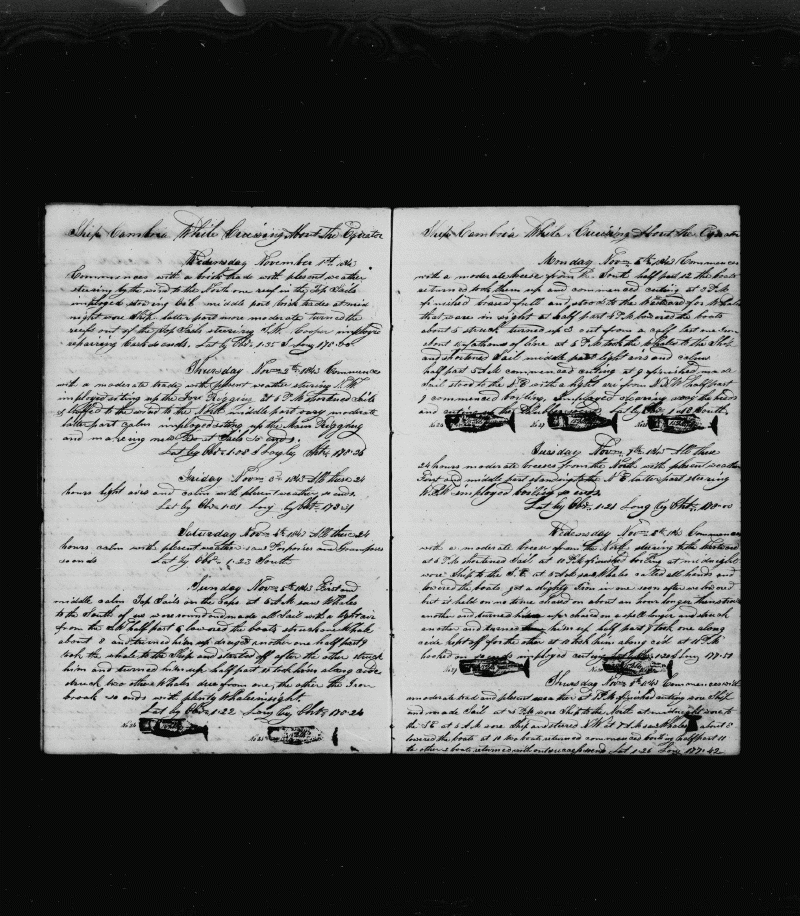 Ship Cambria While Cruising About the Equator
Wednesday November 1st 1843
Commences with a brisk trade with plesent weather
stearing by the wind to the North one reef in the Top Sails
imployed stowing Oil middle part brisk trades at mid
night wore Ship latter part more moderate turned the
reefs out of the Top Sails stearing Cooper imployed
repairing Casks so ends. Lat by Obs 1-35 S Long 175-00
Thursday Nov 2nd 1843 Commences
with a moderate trade with plesent weather stearing N.W
imployed seting up the Fore Riggins at 6 P.M shortened Sails
& luffed to the wind to the North middle part very moderate
latter part calm imployed seting up the Main Rigging
and makeing So ends.
Lat by Obs 1-08 Long by Cht 175-26
Friday Nov 3d 1843 All these 24
hours light aires and calm with plesent weather so ends.
Lat by Obs 1-01 Long by Cht 175-31
Saturday Nov 4th 1843 All these 24
hours calm with plesent weather saw Porpoises and Grampuses
so ends Lat by Obs 1-23 South
Sunday Nov 5th 1843 First and
middle calm Top Sails on the Caps at saw Whales
to the South of us wore round made all Sail with a light air
from the half part 6 lowered the boats struck a Whale
about 8 and turned him up another one half part 9
took the whale to the Ship and started off after the other struck
him and turned him up half part 11 took him along side
struck two other Whales drew from one, the other the Iron
broak so ends with plenty Whales in sight.
Lat by Obs 1-22 Long by Cht 175-24
Ship Cambria While Cruising About the Equator
Monday Nov 6th 1843 Commences
with a moderate breese from South half part 12 the boats
returned took them up and commenced cuting at 3 P.M
finished braced full and stood to the Eastward for Whales
that ware in sight at half part 4 P.M lowered the boats
about 5 struck turned up 3 cut from a calf lost one Iron
about 15 fathoms of line at 5 P.M took the whales to the Ship
and shortened Sail middle part light airs and calms
half part 5 A.M commenced cuting at 9 finished made
Sail stood to the N.E with a light air from N.N.W half part
9 commenced boiling. Imployed clearing away the heads
and cuting up the Blubber Lat by Obs 1-18 South
Tuesday Nov 7th 1843 All these
24 hours moderate breeses from the North with plesent weather
First and middle part standing to the N.E latter part stearing
imployed boiling so ends
Lat by Obs 1-21 Long by Cht 178-00
Wednesday Nov 8th 1843 Commences
with a moderate breese from the North stearing to the Westward
at 6 P.M shortened Sail at 10 P.M finished boiling at midnight
wore Ship to the at saw Whales called all hands and
lowered the boats got a slight Iron in one soon after we lowered
but it held on no time chased on about an hour longer then struck
another and turned him up chased on a spell longer and struck
another and turned him up half part 8 took one along
side left off for the other at 10 took him along side at 11 P.M
hooked on so ends imployed cuting Lat 1-20 Long 177-31
Thursday Nov 9th 1843 Commences with
moderate trad and plesent weather at 3 P.M finished cuting wore Ship
and made Sail at 6 P.M wore Ship to the North at midnight wore to
the S.E at 4 A.M wore Ship and steered N.W at 7 A.M saw Whales about 8
lowered the boats at 10 two boats returned commenced boiling half part 11
the other 2 boats returned without success so ends Lat 1-26 Long 177-42